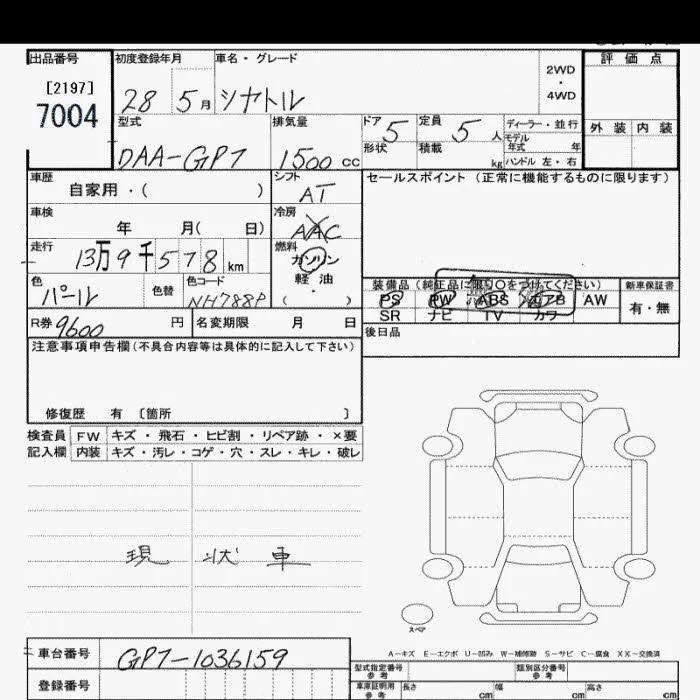 出品番号 初度登録年月 車名・グレード 評価点
[2197] 2WD
7004 28 5月 シヤトル ・
4WD
型式 排気量 ドア 5 定員 5人 ディーラー・並行 外装 内装
モデル年式 年
DAA-GP7 1500cc 形状 積載 kg ハンドル 左・右
車歴 シフト セールスポイント (正常に機能するものに限ります)
自家用・( ) AT
車検 冷房
年 月( 日) AAC
走行 燃料
13万9千578km ガソリン
色 色替 色コード 軽油 装備品(純正品に限り○をつけてください) 新車保証書
パール NH788P ( ) PS PW ABS エアB AW 有・無
R券 9600円 名変期限 月 日 SR ナビ TV カワ
注意事項申告欄(不具合内容等は具体的に記入して下さい) 後日品
修復歴 有 〔箇所 〕
検査員 FW キズ・飛石・ヒビ割・リペア跡・×要
記入欄 内装 キズ・汚レ・コゲ・穴・スレ・キレ・破レ
現状車
スペア
車台番号 GP7-1036159 A-キズ E-エクボ U-凹み W-補修跡 S-サビ C-腐食 XX-交換済
型式指定番号 参考 類別区分番号 参考
登録番号 車庫証明用 参考 長さ cm 幅 cm 高さ cm